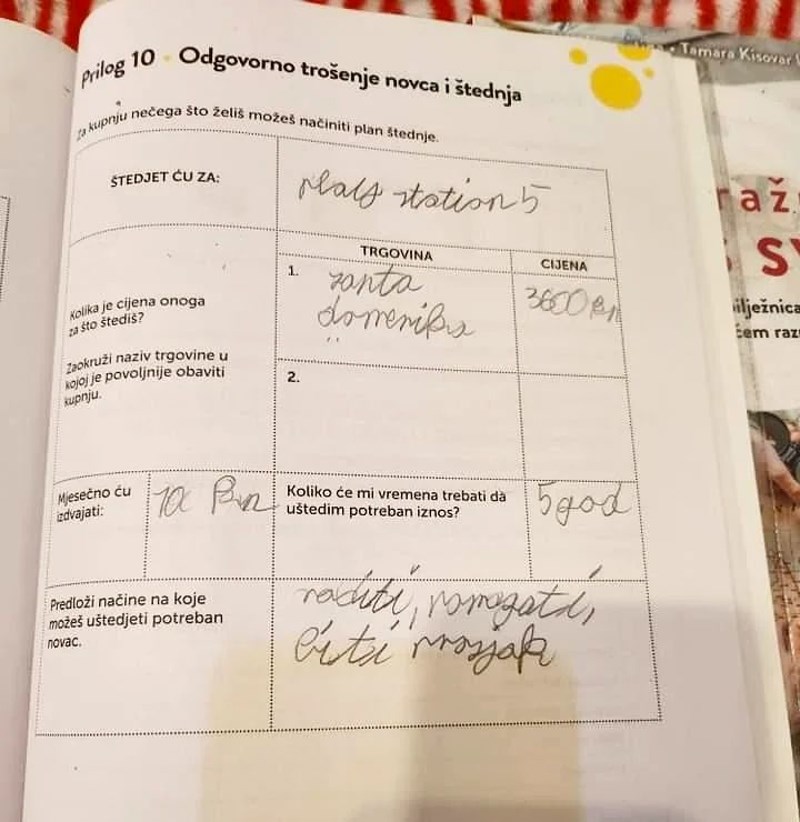 Prilog 10 Odgovorno trošenje novca i štednja
Za kupnju nečega što želiš možeš načiniti plan štednje.
ŠTEDJET ĆU ZA:
play station 5
TRGOVINA
CIJENA
Kolika je cijena onoga
za što štediš?
Zaokruži naziv trgovine u
kojoj je povoljnije obaviti
kupnju.
1.
santa
domenika
3600 kn
2.
Mjesečno ću
izdvajati:
10 kn
Koliko će mi vremena trebati da
uštedim potreban iznos?
5 god
Predloži načine na koje
možeš uštedjeti potreban
novac.
raditi, pomagati,
biti prosjak
Tamara Kisovar
raž
SV
ilježnica
čem raz